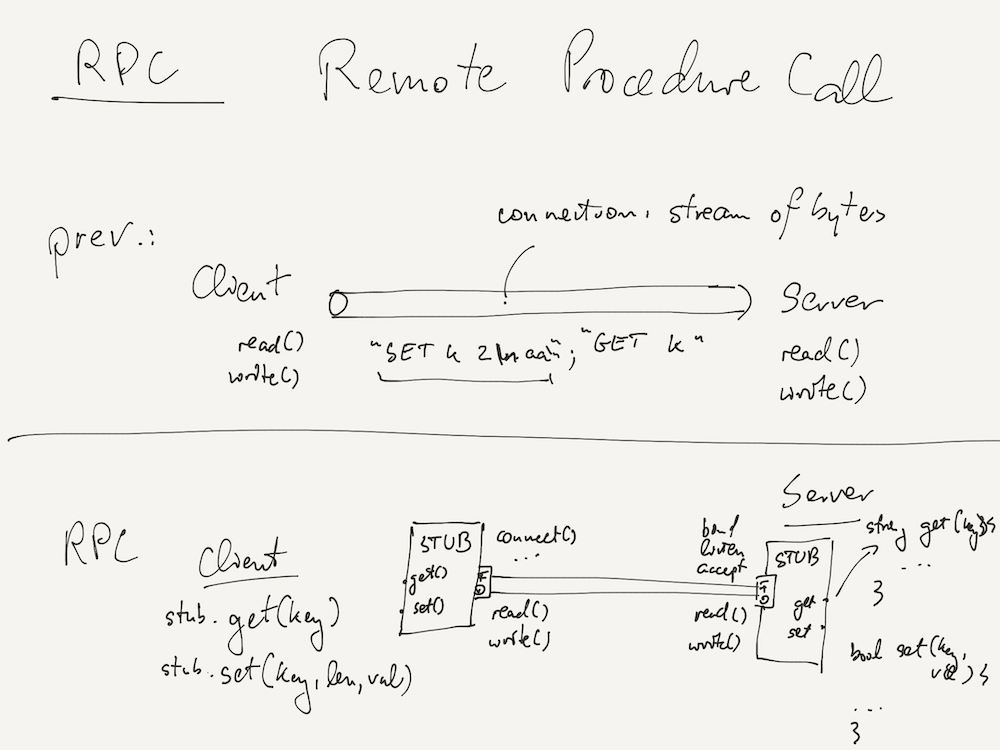 RPC Remote Procedure Call
prev.:
connection, stream of bytes
Client
Server
read()
write()
"SET k 2\naa"; "GET k"
read()
write()
RPC
Client
stub.get(key)
stub.set(key, len, val)
STUB
get()
set()
connect()
...
read()
write()
Server
listen
accept
read()
write()
STUB
get
set
get(key){
...
}
bool set(key,
{
...
}